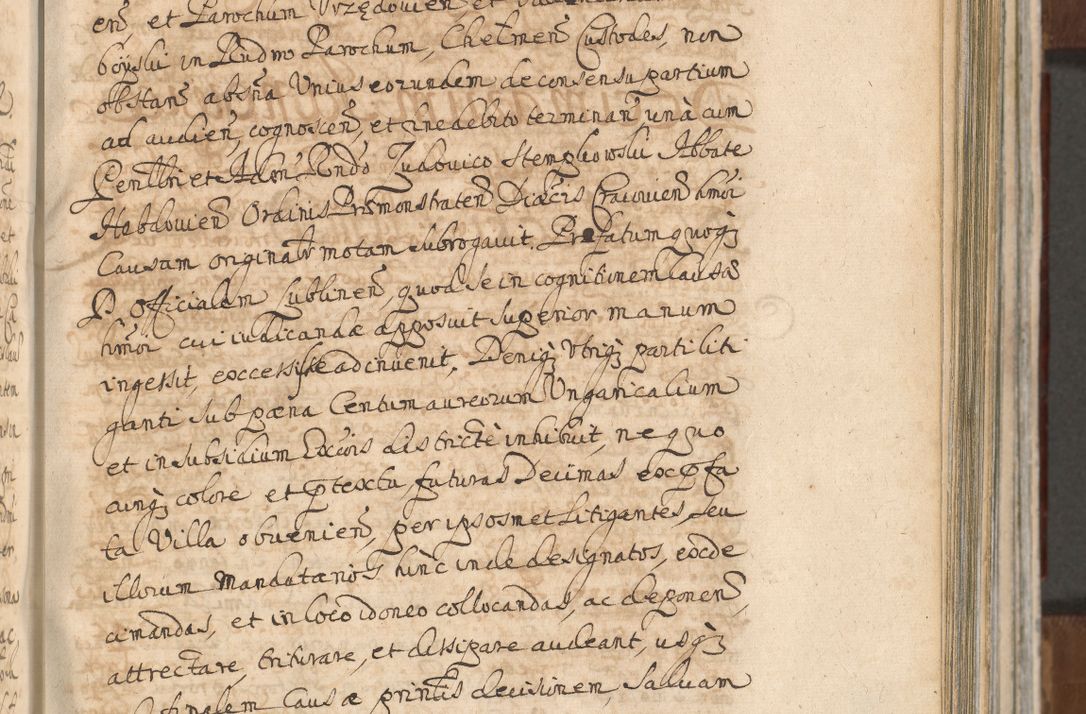 en, et Parochum Vrzędovien et
boyski in Rudno Parochum, Chelmen Custodes, non
obstan absna Unius eorundem de consensu partium
ad audien, cognoscen, et fine debito terminan unà cum
Pertlri et Adm Rndo Ludovico Stempkowski Abbate
Hebdouien Ordinis Præmonstraten Diæcis Cracouien hmoi
Causam originalr motam subrogauit. Præfatum quoq;
D. Officialem Lublinen, quod se in cognitionem Causæ
hmoi cui iudicandæ apposuit Superior manum
ingessit, excessisse adinuenit. Deniq; Vtriq; parti liti
ganti sub pœna Centum aureorum Ungaricalium
et in subsidium Excois districtè inhibuit, ne quo
cunq; colore et ptextu, futuras Decimas ex pfa
ta Villa obuenien, per ipsosmet Litigantes, seu
illorum Mandatarios hinc inde designatos, exde
cimandas, et in loco idoneo collocandas, ac deponen,
attrectare, triturare, et dissipare audeant, usq;
finalem Causæ printis decisionem, Saluam